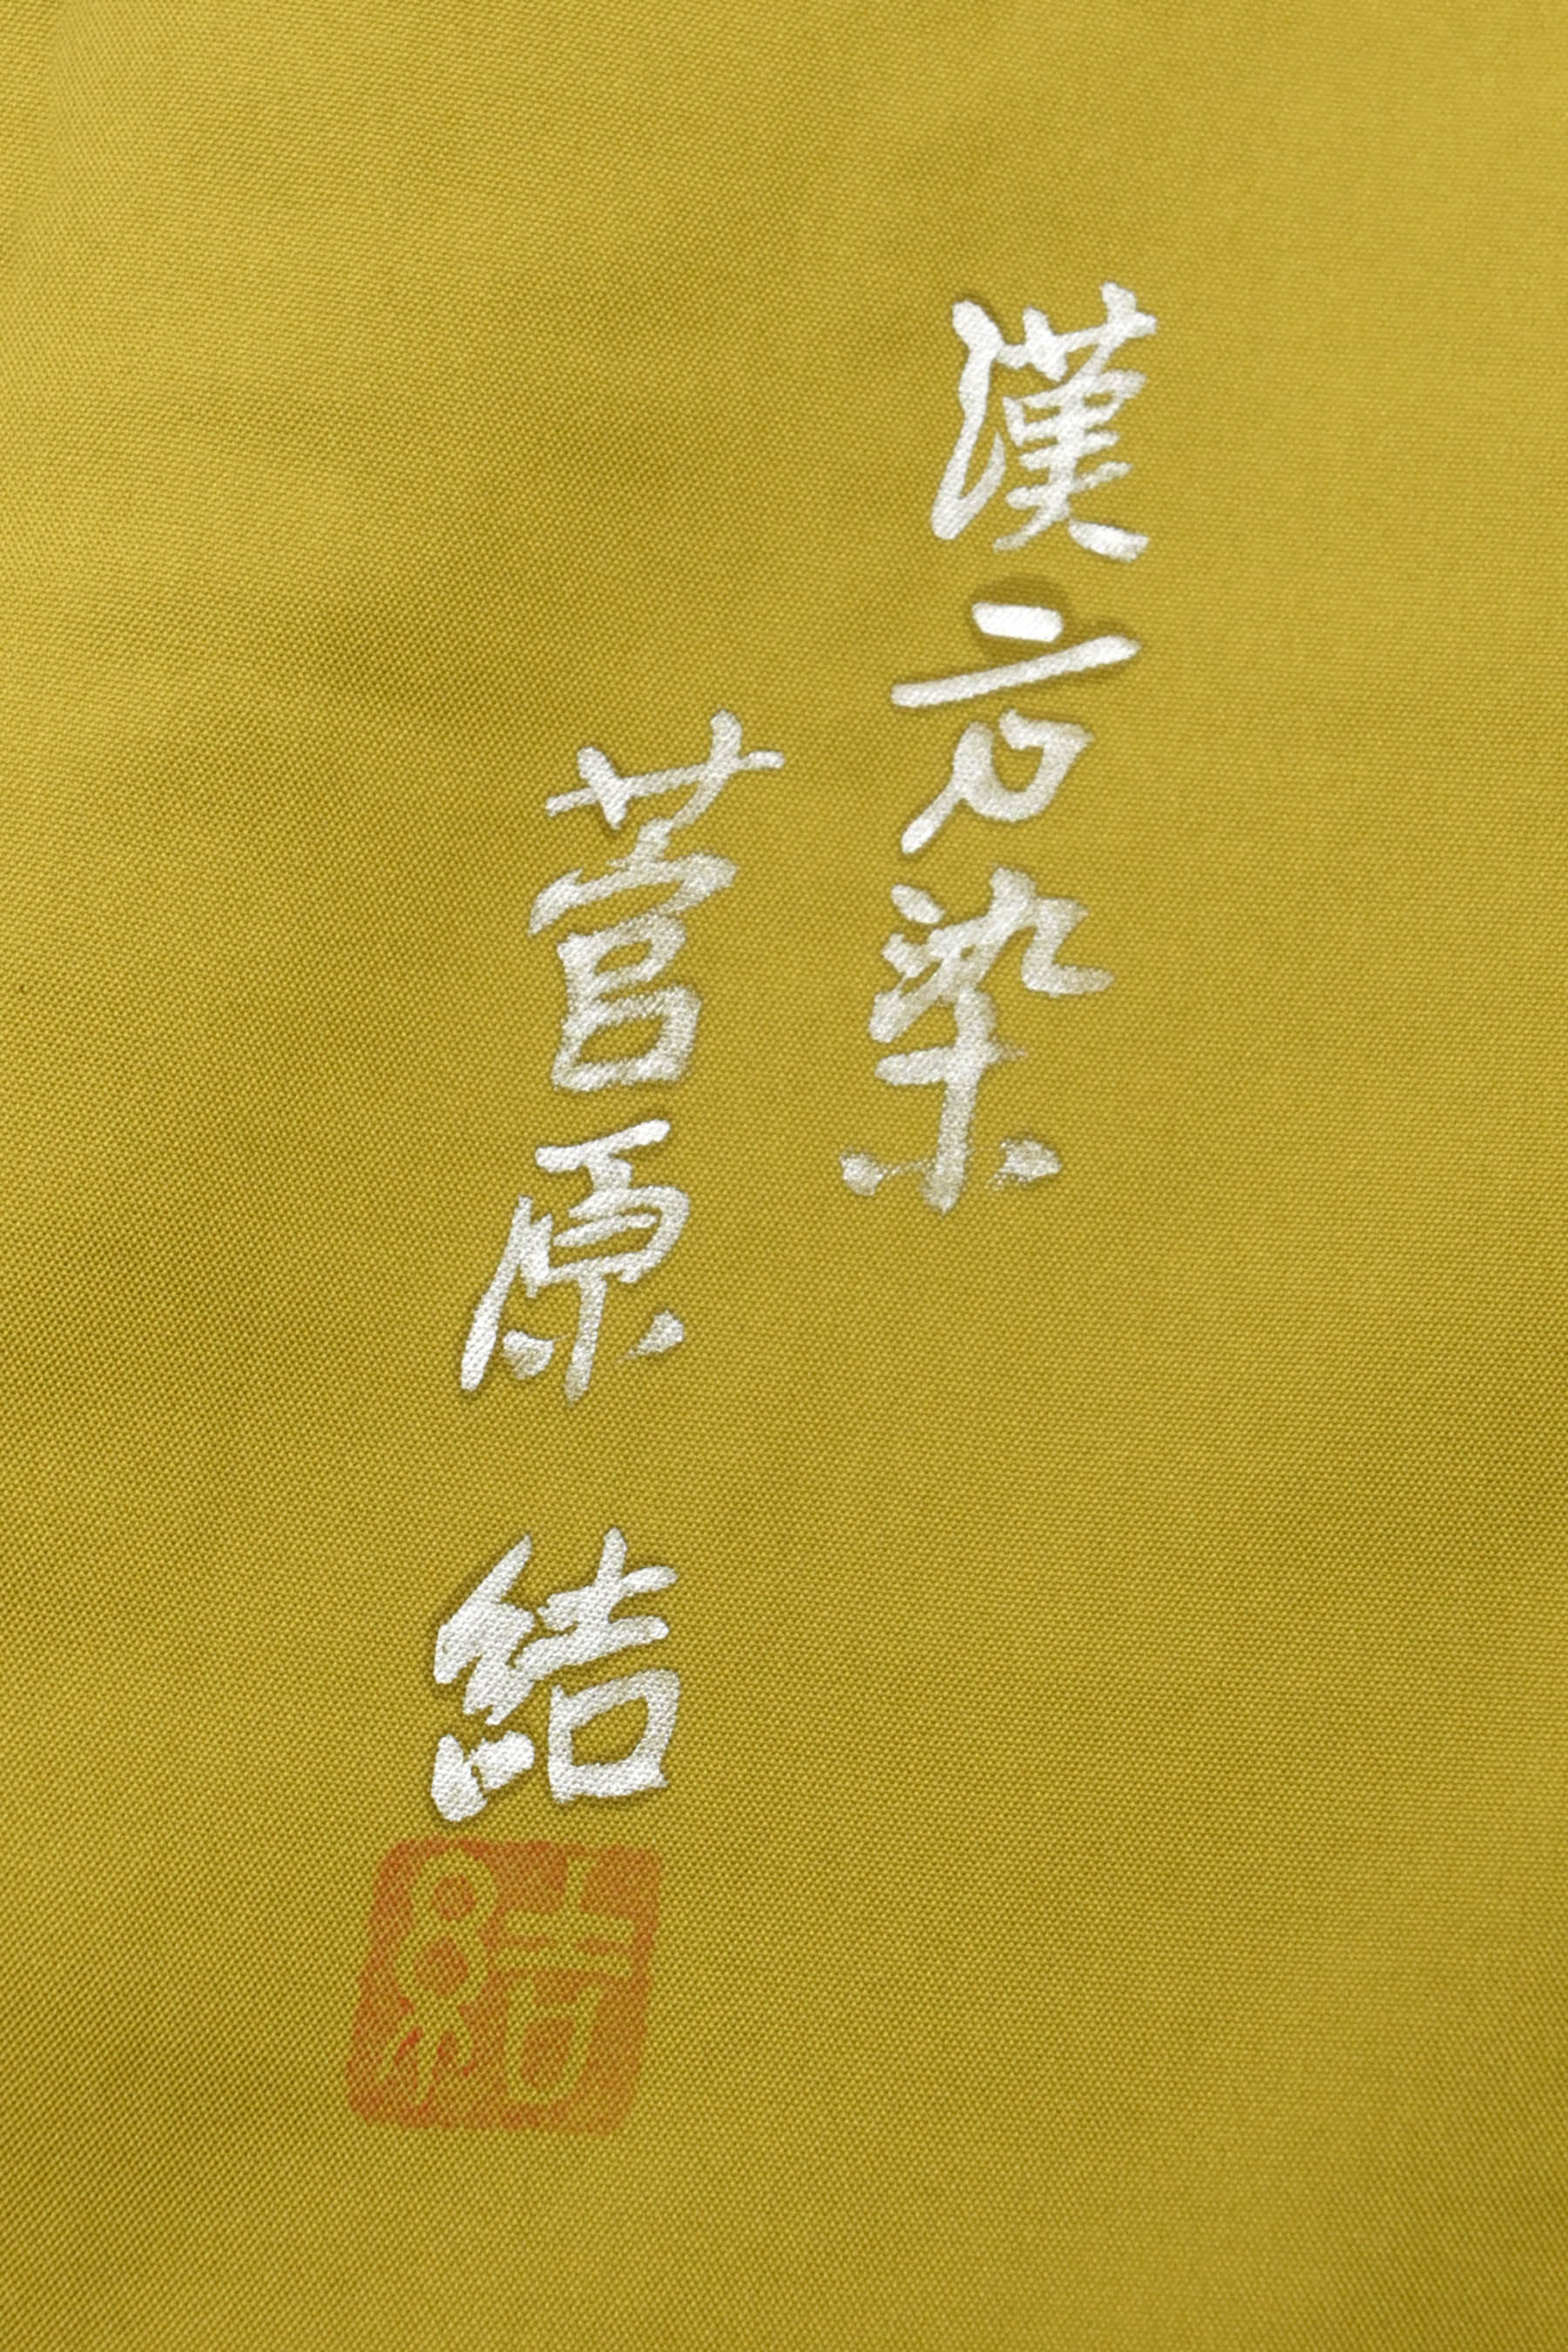 漢方染
菅原 結
結